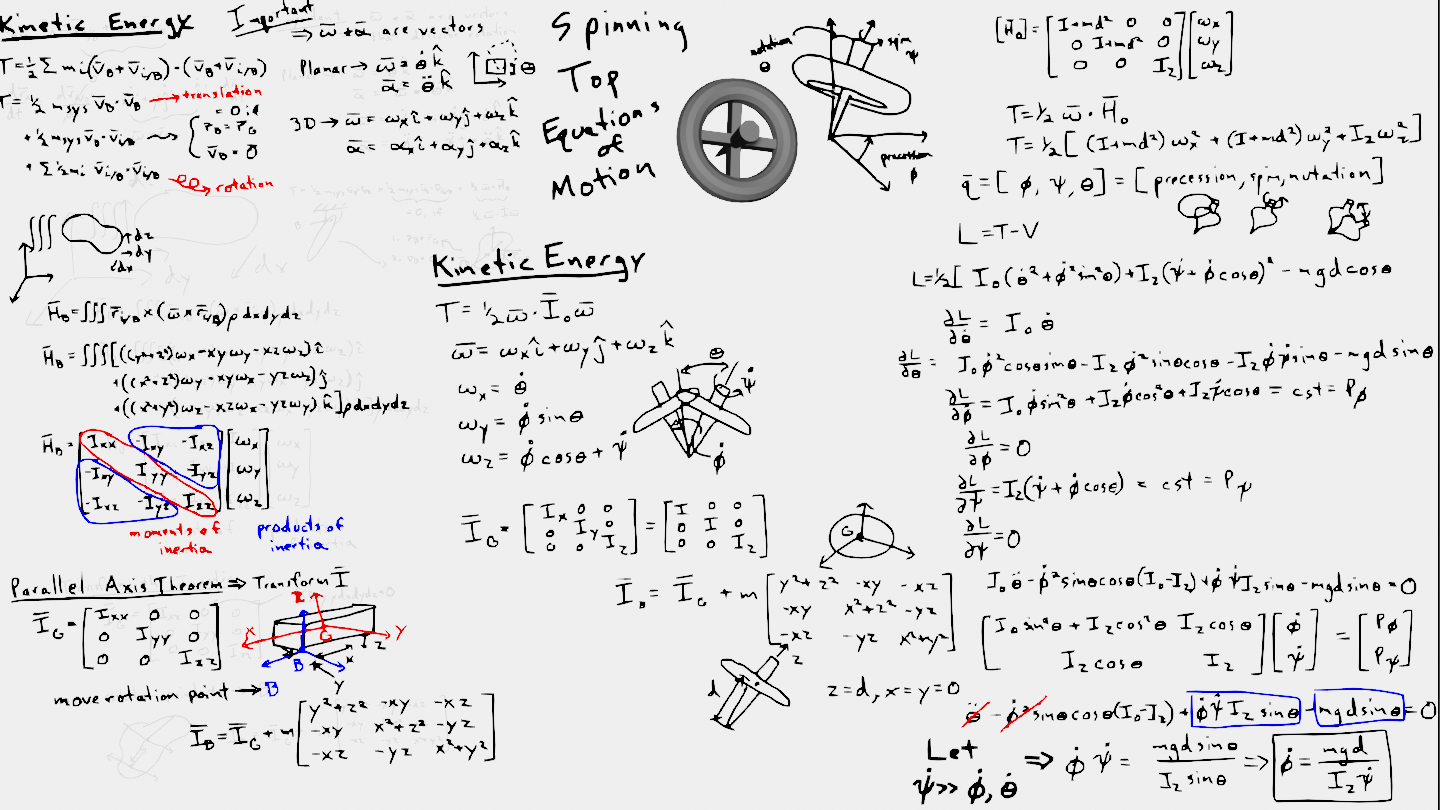 Kinetic Energy
Important
⇒ ω̄ + ᾱ are vectors
T = ½ Σ mi (v̄B + v̄i/B) · (v̄B + v̄i/B)
Planar → ω̄ = θ̇ k̂
ᾱ = θ̈ k̂
θ
T = ½ msys v̄B · v̄B → translation
+ ½ msys v̄B · v̄i/B
= 0 if
r̄B = r̄G
v̄B = 0̄
+ Σ ½ mi v̄i/B · v̄i/B
rotation
3D → ω̄ = ωx î + ωy ĵ + ωz k̂
ᾱ = αx î + αy ĵ + αz k̂
∫∫∫
dz
dy
dx
H̄B = ∫∫∫ r̄i/B × (ω̄ × r̄i/B) ρ dx dy dz
H̄B = ∫∫∫ [((y²+z²)ωx - xyωy - xzωz) î
+ ((x²+z²)ωy - xyωx - yzωz) ĵ
+ ((x²+y²)ωz - xzωx - yzωy) k̂] ρ dx dy dz
H̄B = [Ixx -Ixy -Ixz] [ωx]
[-Ixy Iyy -Iyz] [ωy]
[-Ixz -Iyz Izz] [ωz]
moments of inertia
products of inertia
Parallel Axis Theorem ⇒ Transform Ī
ĪG = [Ixx 0 0]
[0 Iyy 0]
[0 0 Izz]
Z
X
G
Y
B
x
z
y
move rotation point → B
ĪB = ĪG + m [y²+z² -xy -xz]
[-xy x²+z² -yz]
[-xz -yz x²+y²]
Spinning
Top
Equations
of
Motion
nutation
θ
spin
ψ
precession
φ
Kinetic Energy
T = ½ ω̄ · Ī₀ ω̄
ω̄ = ωx î + ωy ĵ + ωz k̂
ωx = θ̇
ωy = φ̇ sinθ
ωz = φ̇ cosθ + ψ̇
θ
ψ̇
φ̇
ĪG = [Ix 0 0] = [I 0 0]
[0 Iy 0] [0 I 0]
[0 0 Iz] [0 0 Iz]
G
Ī₀ = ĪG + m [y²+z² -xy -xz]
[-xy x²+z² -yz]
[-xz -yz x²+y²]
z
d
z = d, x = y = 0
[H̄₀] = [I+md² 0 0] [ωx]
[0 I+md² 0] [ωy]
[0 0 Iz] [ωz]
T = ½ ω̄ · H̄₀
T = ½ [(I+md²) ωx² + (I+md²) ωy² + Iz ωz²]
q̄ = [φ, ψ, θ] = [precession, spin, nutation]
L = T - V
L = ½[ I₀(θ̇² + φ̇² sin²θ) + Iz(ψ̇ + φ̇ cosθ)² - mgd cosθ
∂L/∂θ̇ = I₀ θ̇
∂L/∂θ = I₀ φ̇² cosθ sinθ - Iz φ̇² sinθ cosθ - Iz φ̇ ψ̇ sinθ - mgd sinθ
∂L/∂φ̇ = I₀ φ̇ sin²θ + Iz φ̇ cos²θ + Iz ψ̇ cosθ = cst = Pφ
∂L/∂φ = 0
∂L/∂ψ̇ = Iz(ψ̇ + φ̇ cosθ) = cst = Pψ
∂L/∂ψ = 0
I₀ θ̈ - φ̇² sinθ cosθ (I₀ - Iz) + φ̇ ψ̇ Iz sinθ - mgd sinθ = 0
[I₀ sin²θ + Iz cos²θ Iz cosθ] [φ̇] = [Pφ]
[Iz cosθ Iz] [ψ̇] [Pψ]
θ̈ - φ̇² sinθ cosθ (I₀ - Iz) + φ̇ ψ̇ Iz sinθ - mgd sinθ = 0
Let
ψ̇ >> φ̇, θ̇
⇒ φ̇ ψ̇ = mgd sinθ / Iz sinθ ⇒ φ̇ = mgd / Iz ψ̇